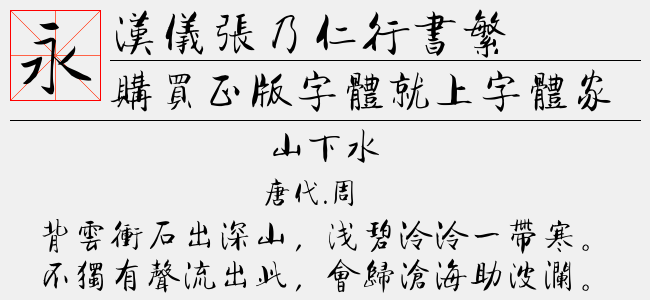 永
漢儀張乃仁行書繁
購買正版字體就上字體家
山下水
唐代.周
背雲衝石出深山，浅碧泠泠一帶寒。
不獨有聲流出此，會歸滄海助波瀾。